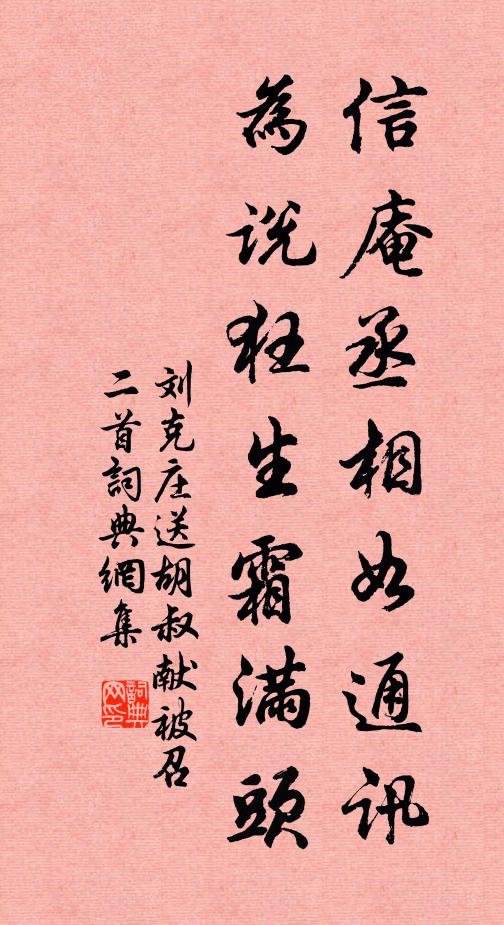 信庵丞相如通訊
為说狂生霜满頭
刘克庄送胡叔献被召
二首詞典網集
詞典
网印